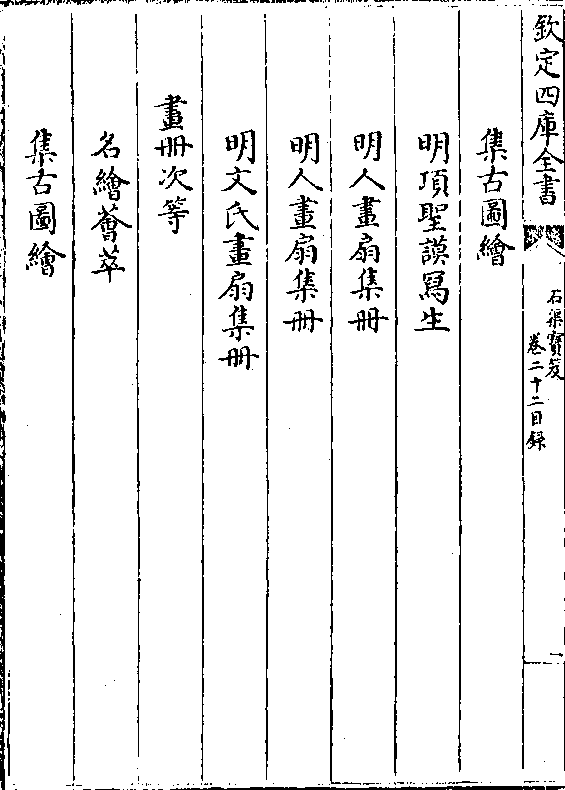 欽定四庫全書
石渠寶笈
卷二十二目録
一
集古圖繪
明項聖謨寫生
明人畫扇集册
明人畫扇集册
明文氏畫扇集册
畫册次等
名繪薈萃
集古圖繪